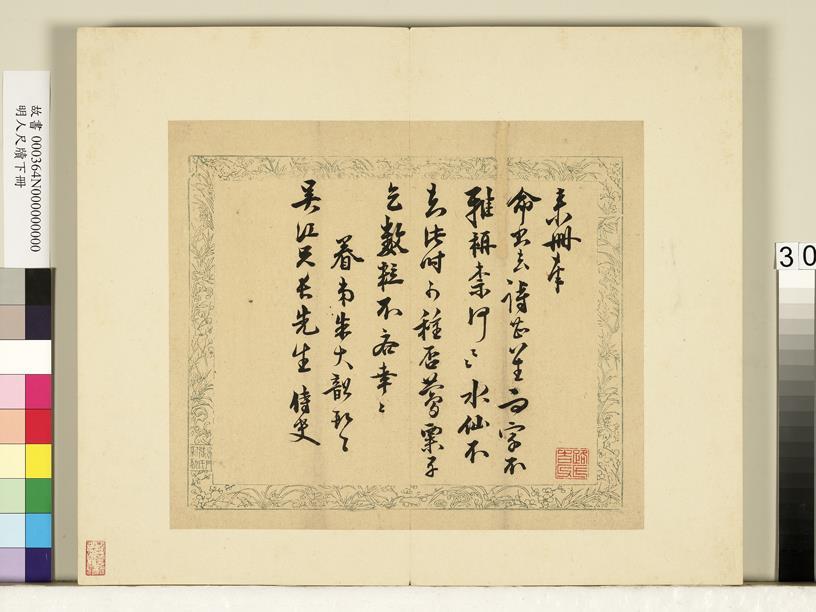 來冊奉
命書去詩甚草而字不
雅稱柰何〻水仙不
知此時可種否鶯粟子
乞數粒不吝幸〻
眷弟朱大韶頓〻
吳江兄長先生 侍史
故書 000364N000000000
明人尺牘下冊
30